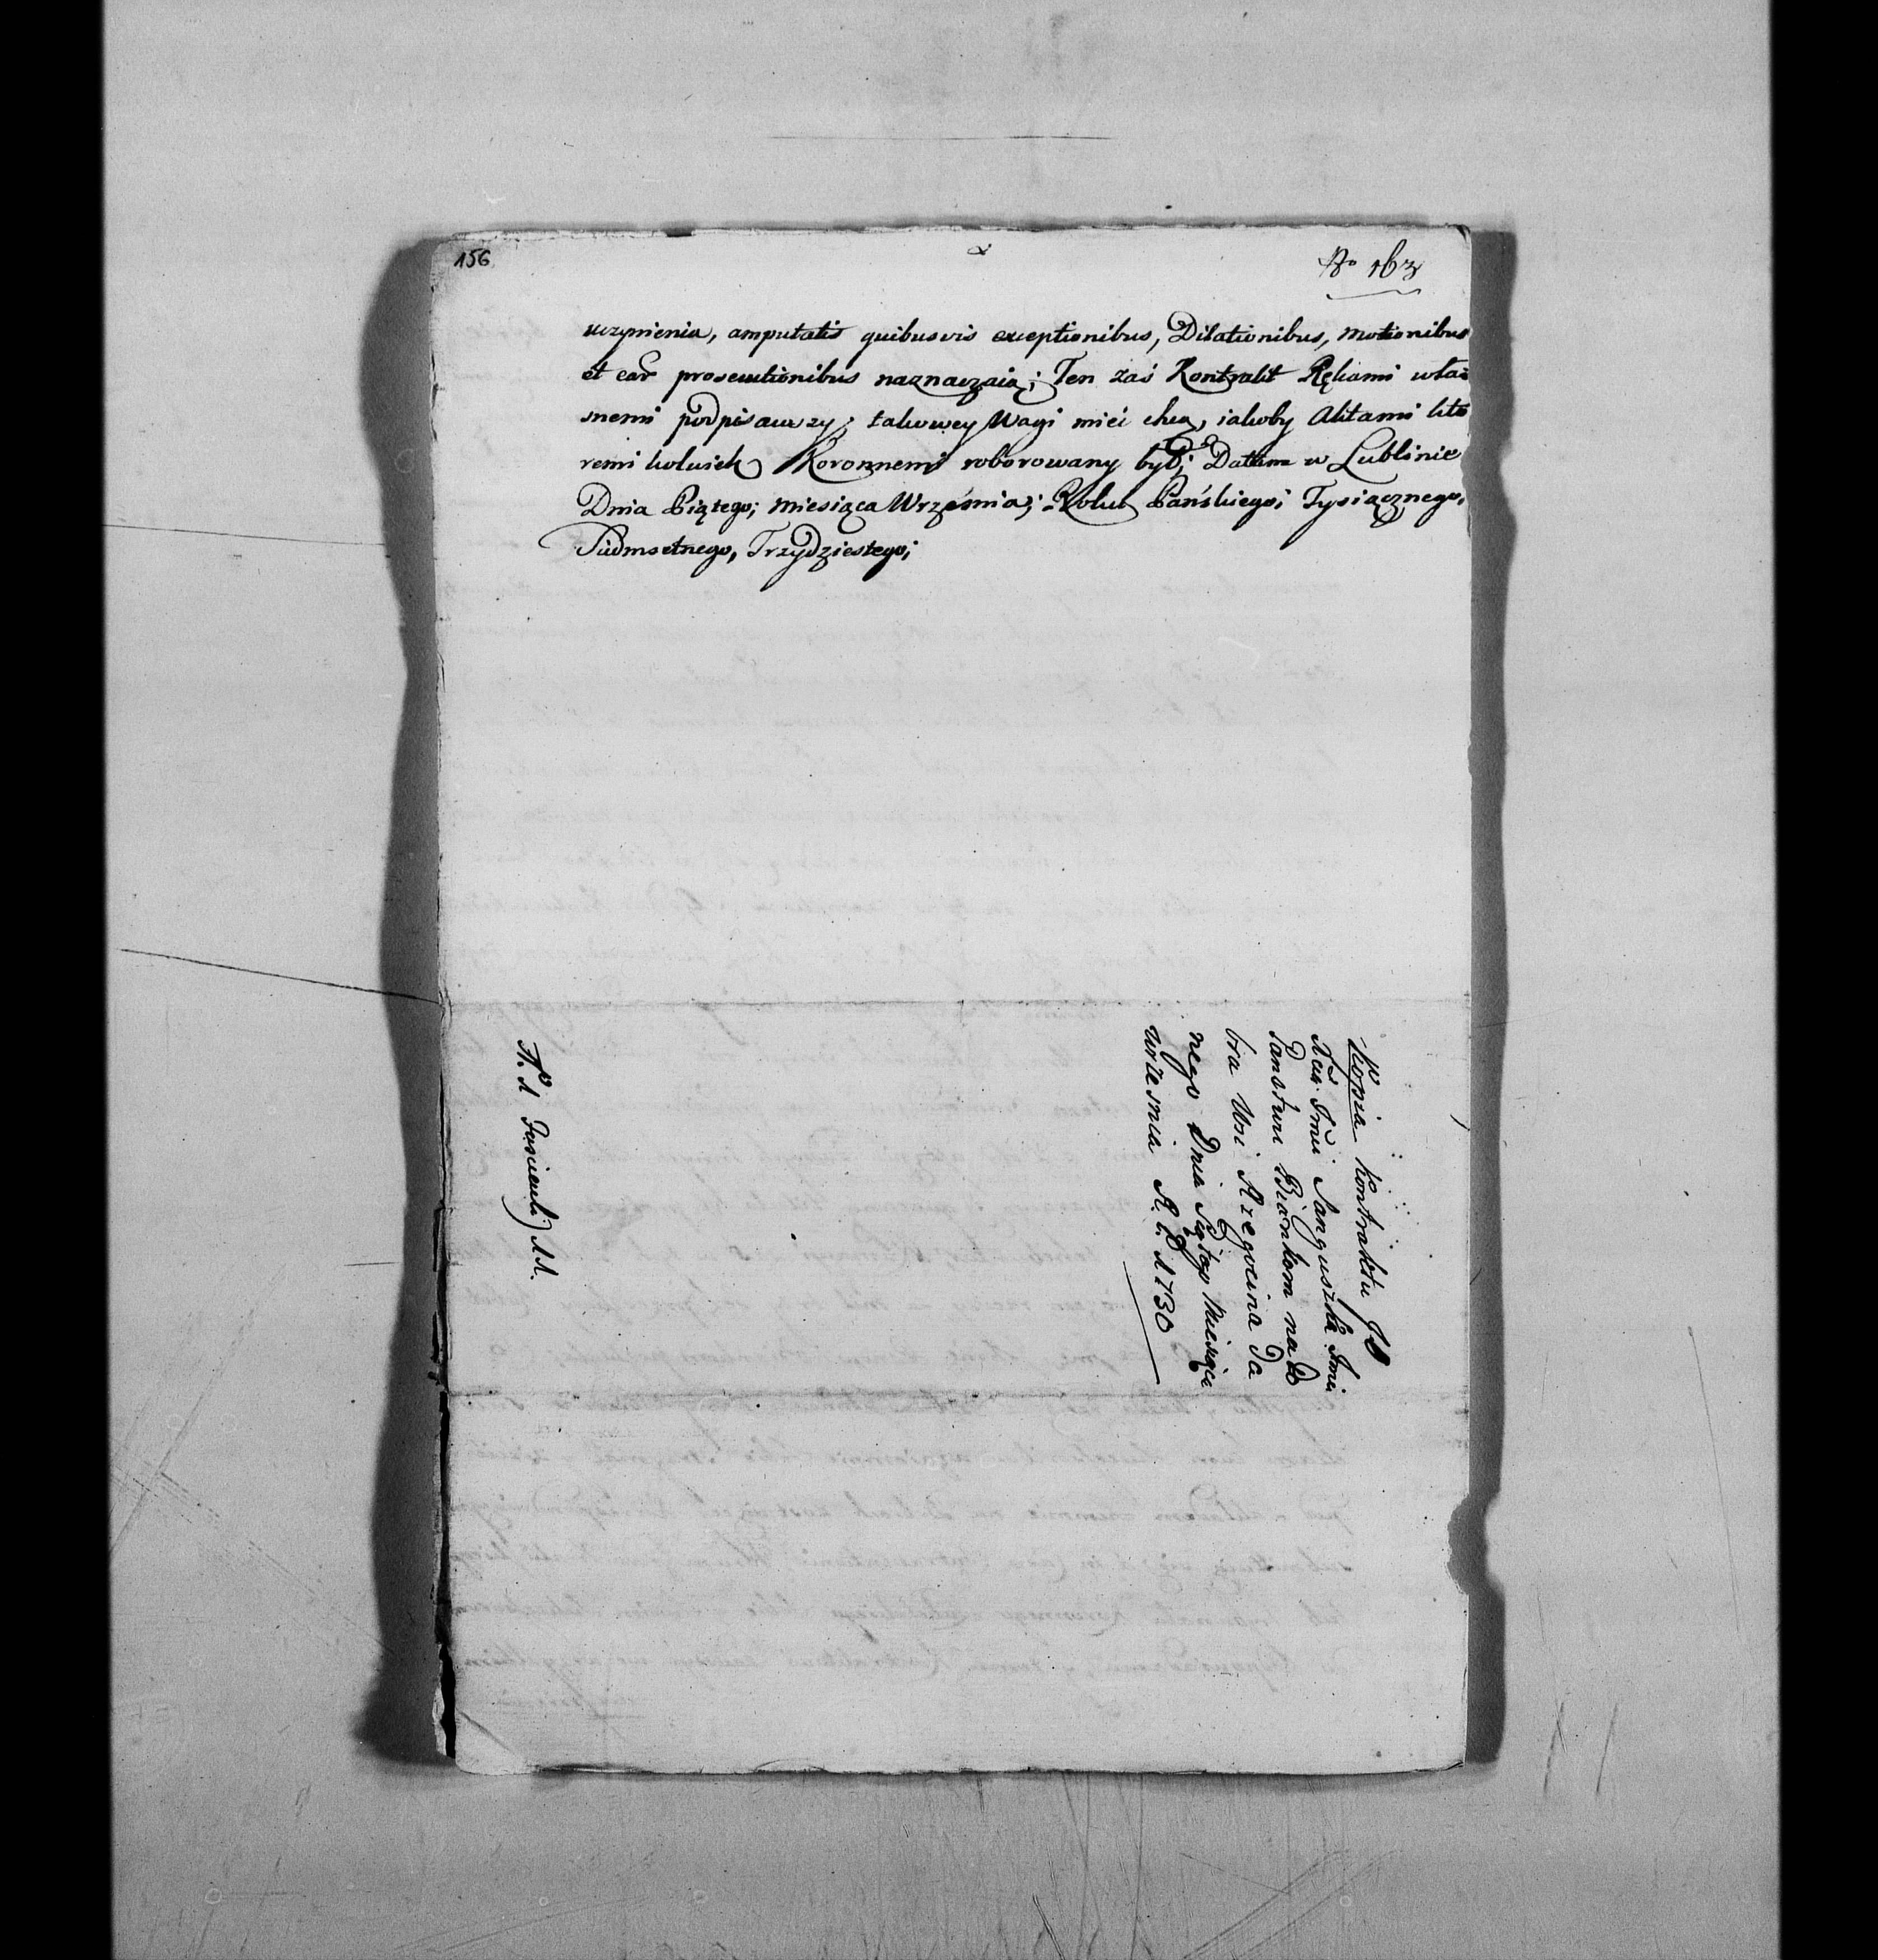 156
No 163
uczynienia, amputatis quibusvis exceptionibus, Dilationibus, motionibus
et ear prosecutionibus naznaczaią; Ten zaś Kontrakt Rękami wła=
snemi podpisawszy; takowey Wagi mieć chcą, iakoby Aktami któ
remi kolwiek Koronnemi roborowany był; Datum w Lublinie
Dnia Piątego; Miesiąca Września; Roku Pańskiego; Tysiącznego,
Siedmsetnego, Trzydziestego;
Kopia Kontraktu JO
Xcia Jmci Sanguszka Jmci
Państwu Bieńkom na Do
bra Wsi Rzegocina Da
nego Dnia Piątego Miesiąca
września R. P. 1730
No. 1 Fasciculi 11.